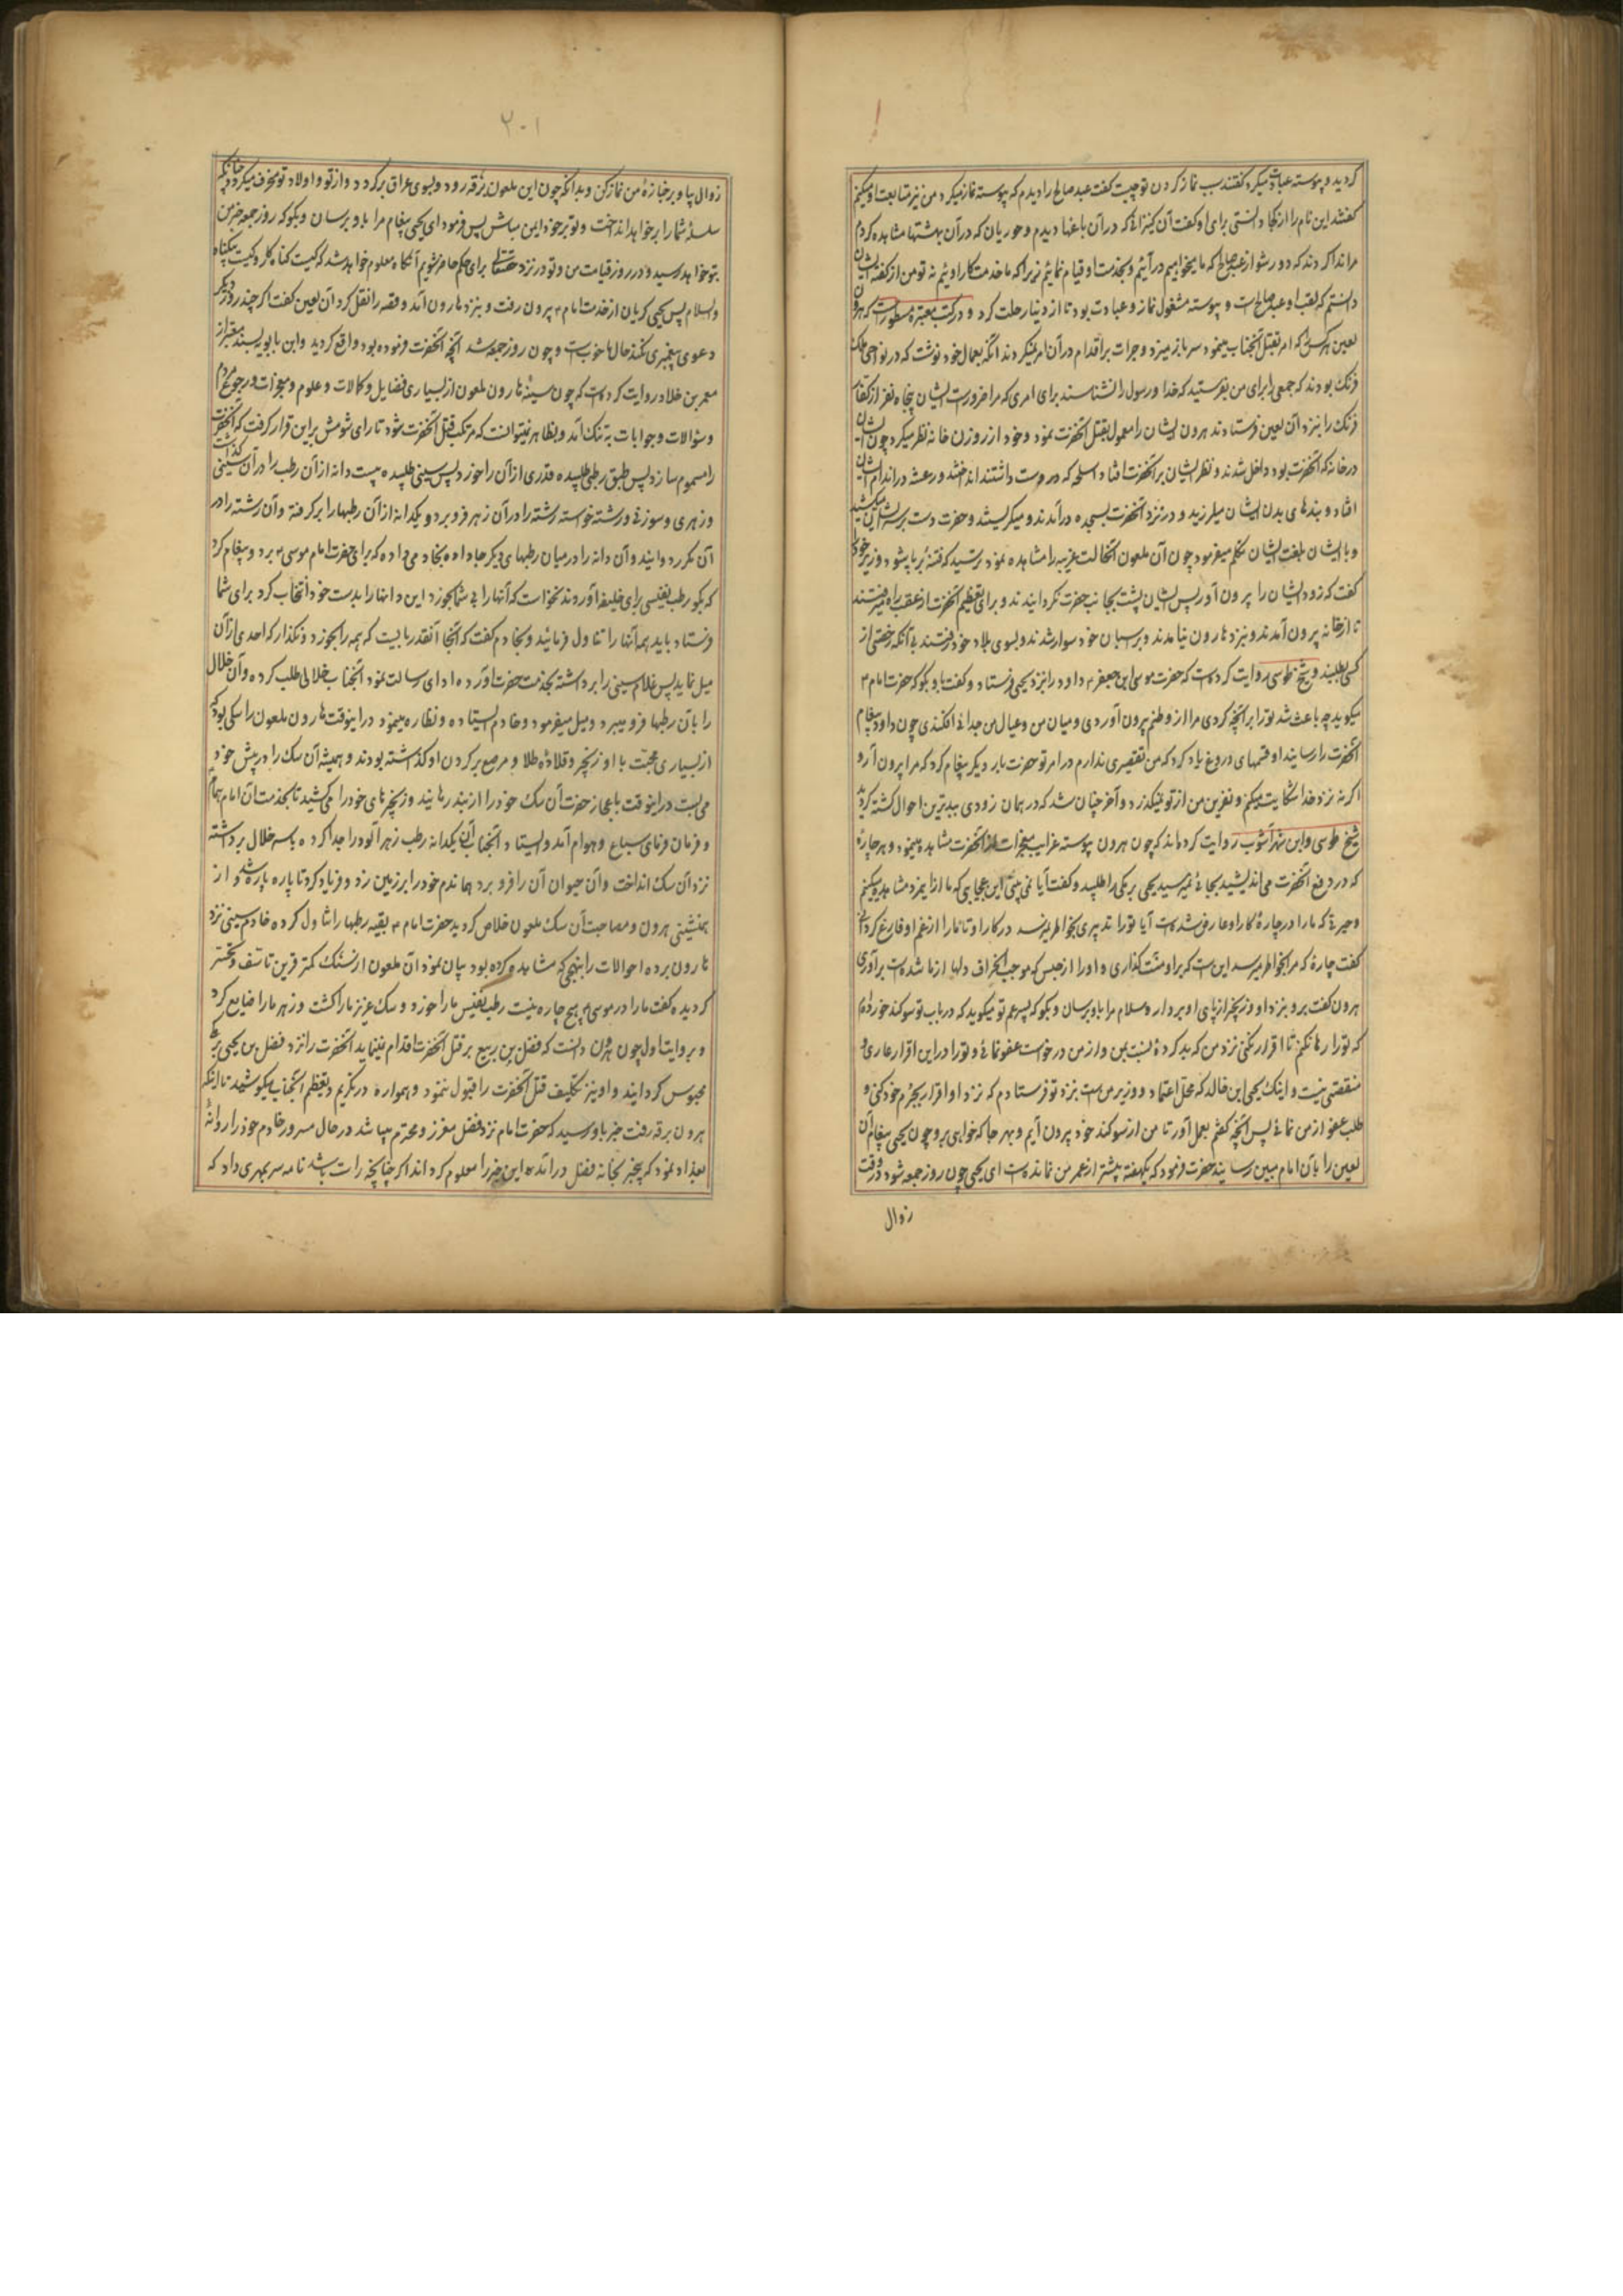 گردید و پیوسته عبادت میکرد گفتند سبب نماز کردن تو چیست گفت عبد صالح را دیدم که پیوسته نماز میکرد من نیز متابعت او میکنم
گفتند این نام را از کجا دانستی برای او گفت آن کنیزانی که در آن باغها دیدم و حوریان که در آن بهشتها مشاهده کردم
مرا ندا کردند که دور شو از عبد صالح که ما میخواهیم در آئیم و بخدمت او قیام نمائیم زیرا که ما خدمتکار اوئیم نه تو من از گفته ایشان
دانستم که لقب او عبد صالح است و پیوسته مشغول نماز و عبادت بود تا از دنیا رحلت کرد و در کتب معتبره مسطور است که هرون
لعین هر کس را که امر بقتل آنجناب مینمود سر باز میزد و جرات بر اقدام در آن امر نمیکردند آنگه بعمال خود نوشت که در نواحی ملک
فرنک بودند که جمعی را برای من بفرستید که خدا و رسول را نشناسند برای امری که مرا ضرور است ایشان پنجاه نفر از کفار
فرنک را بنزد آن لعین فرستادند هرون ایشان را مامول بقتل آنحضرت نمود و خود از روزن خانه نظر میکرد چون ایشان
در خانه که آنحضرت بود داخل شدند و نظر ایشان بر آنحضرت افتاد اسلحه که در دست داشتند انداختند و رعشه در اندام ایشان
افتاد و بندهای بدن ایشان میلرزید و در نزد آنحضرت بسجده در آمدند و میگریستند و حضرت دست بر سر ایشان میکشید
و با ایشان بلغت ایشان تکلم میفرمود چون آن ملعون آنحالت غریبه را مشاهده نمود ترسید که فتنه بر پا شود وزیر خود را
گفت که زود ایشان را بیرون آور پس ایشان پشت بجانب حضرت نگردانیدند و برای تعظیم آنحضرت از عقب راه میرفتند
تا از خانه بیرون آمدند و نزد هارون نیامدند و بر اسبان خود سوار شدند و بسوی بلاد خود رفتند بی آنکه رخصتی از
کسی طلبند و شیخ طوسی روایت کرده است که حضرت موسی ابن جعفر ع داود را بنزد یحیی فرستاد و گفت باو بگو که حضرت امام ع
میگوید چه باعث شد تو را بر آنچه کردی مرا از وطنم بیرون آوردی و میان من و عیال من جدائی افکندی چون داود پیغام
آنحضرت را رسانید او قسمهای دروغ یاد کرد که من تقصیری ندارم در امر تو حضرت بار دیگر پیغام کرد که مرا بیرون آر و
اگر نه نزد خدا شکایت میکنم و نفرین من از تو نمیگذرد و آخر چنان شد که در همان زودی ببدترین احوال کشته گردید
شیخ طوسی و ابن شهر آشوب روایت کرده اند که چون هرون پیوسته غرایب معجزات از آنحضرت مشاهده مینمود و هر چاره
که در دفع آنحضرت می اندیشید بجائی نمیرسید یحیی برمکی را طلبید و گفت آیا نمی بینی این عجایبی که ما از این مرد مشاهده میکنیم
و حیرتی که ما را در چاره کار او عارض شده است آیا تو را تدبیری بخاطر میرسد در کار او تا ما را از غم او فارغ گردانی
گفت چاره که مرا بخاطر میرسد این است که بر او منت گذاری و او را از حبس که موجب انحراف دلها از ما شده است برآوری
هرون گفت برو بنزد او و زنجیر از پای او بردار و سلام مرا باو برسان و بگو که پسر عم تو میگوید که در باب تو سوگند خورده ام
که تو را رها نکنم تا اقرار نکنی نزد من که بد کرده نسبت بمن و از من درخواست عفو نمائی و تو را در این اقرار عاری و
منقصتی نیست و اینک یحیی ابن خالد که محل اعتماد و وزیر من است بنزد تو فرستادم که نزد او اقرار بجرم خود کنی و
طلب عفو از من نمائی پس آنچه گفتم بعمل آور تا من از سوگند خود بیرون آیم و بهر جا که خواهی برو چون یحیی پیغام آن
لعین را بآن امام مبین رسانید حضرت فرمود که یکهفته بیشتر از عمر من نمانده است ای یحیی چون روز جمعه شود و وقت
زوال
۲۰۱
زوال بیا و بر جنازهٔ من نماز کن و بدانکه چون این ملعون برقه رود و بسوی عراق برگردد و از تو و اولاد تو منحرف میگردد چنانکه
سلسلهٔ شما را بر خواهد انداخت و تو بر خود ایمن مباش پس فرمود ای یحیی پیغام مرا باو برسان و بگو که روز جمعه خبر من
بتو خواهد رسید و در روز قیامت من و تو در نزد حقتعالی برای حکم حاضر شویم آنگاه معلوم خواهد شد که کیست گناه کار و کیست بیگناه
والسلام پس یحیی گریان از خدمت امام ع بیرون رفت و بنزد هارون آمد و قصه را نقل کرد آن لعین گفت اگر چند روز دیگر
دعوی پیغمبری نکند حال ما خوب است و چون روز جمعه شد آنچه آنحضرت فرموده بود واقع گردید و ابن بابویه بسند معتبر از
معمر بن خلاد روایت کرده است که چون سینهٔ هارون ملعون از بسیاری فضایل و کمالات و علوم و معجزات و رجوع مردم
و سؤالات و جوابات به تنک آمد و بظاهر نمیتوانست که مرتکب قتل آنحضرت شود تا رای شومش بر این قرار گرفت که آنحضرت
را مسموم سازد پس طبق رطبی طلبیده قدری از آن را خورد پس سینی طلبیده بیست دانه از آن رطب را در آن سینی گذاشت
و زهری و سوزنی و رشته خواسته رشته را در آن زهر فرو برد و یکدانه از آن رطبها را بر گرفته و آن رشته را در
آن مکرر دوانید و آن دانه را در میان رطبهای دیگر جا داده بخادمی داده که برای حضرت امام موسی ع برد و پیغام کرد
که بگو رطب نفیسی برای خلیفه آوردند نخواست که آنها را بی شما بخورد این دانها را بدست خود انتخاب کرد برای شما
فرستاد باید همه آنها را تناول فرمائید و بخادم گفت که آنجا آنقدر بایست که همه را بخورد و نگذار که احدی از آن
میل نماید پس غلام سینی را برداشته بخدمت حضرت آورده ادای رسالت نمود آنجناب خلالی طلب کرده و آن خلال
را بآن رطبها فرو میبرد و میل میفرمود و خادم ایستاده و نظاره مینمود در اینوقت هارون ملعون را سگی بود که
از بسیاری محبت با او زنجیر و قلادهٔ طلا و مرصع بر گردن او گذاشته بودند و همیشه آن سک را در پیش خود
می بست در اینوقت باعجاز حضرت آن سک خود را از بند رهانید و زنجیرهای خود را می کشید تا بخدمت آن امام همام
و فرمان فرمای سباع و هوام آمد و ایستاد و آنجناب آن یکدانه رطب زهر آلود را جدا کرده بسر خلال برداشته
نزد آن سک انداخت و آن حیوان آن را فرو برد هماندم خود را بر زمین زد و فریاد کرد تا پاره پاره شد و از
همنشینی هرون و مصاحبت آن سک ملعون خلاص گردید حضرت امام ع بقیه رطبها را تناول کرده خادم سینی نزد
هارون برده احوالات را بنهجی که مشاهده کرده بود بیان نمود آن ملعون از سنک کمتر قرین تاسف و تحسر
گردیده گفت ما را در موسی هیچ چاره نیست رطب نفیس ما را خورد و سک عزیز ما را کشت و زهر ما را ضایع کرد
و بروایت اول چون هرون دانست که فضل بن ربیع بر قتل آنحضرت اقدام نمینماید آنحضرت را نزد فضل بن یحیی برمکی
محبوس گردانید و او نیز تکلیف قتل آنحضرت را قبول ننمود و همواره در تکریم و تعظیم آنجناب میکوشید تا اینکه
هرون برقه رفت خبر باو رسید که حضرت امام نزد فضل معزز و محترم میباشد در حال مسرور خادم خود را روانهٔ
بغداد نمود که بیخبر بخانه فضل در آمده این خبر را معلوم گرداند اگر چنانچه راست باشد نامه سر بمهری داد که